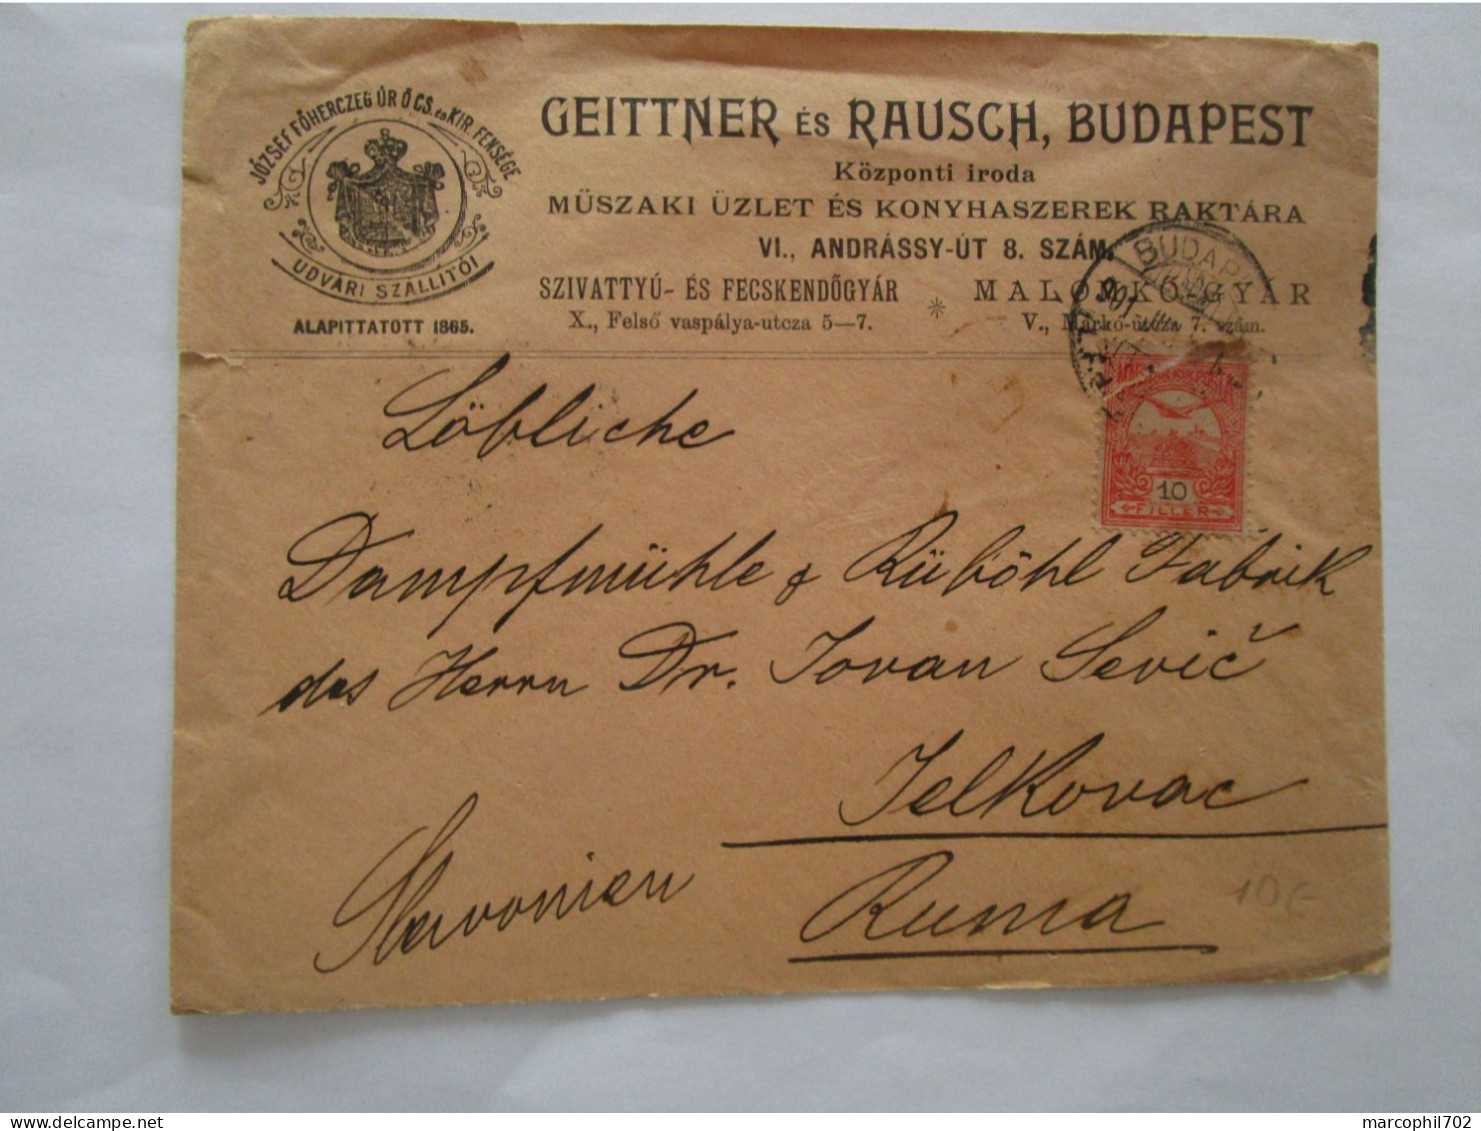 JÓZSEF FŐHERCZEG ÚR Ő CS. és KIR. FENSÉGE
UDVARI SZÁLLÍTÓI
ALAPITTATOTT 1865.
GEITTNER ÉS RAUSCH, BUDAPEST
Központi iroda
MŰSZAKI ÜZLET ÉS KONYHASZEREK RAKTÁRA
VI., ANDRÁSSY-ÚT 8. SZÁM.
SZIVATTYÚ- ÉS FECSKENDŐGYÁR * MALOMKŐ-GYÁR
X., Felső vaspálya-utcza 5—7. V., Markó-utcza 7. szám.
BUDAPEST
10
FILLÉR
Löbliche
Dampfmühle & Ruböhl Fabrik
des Herrn Dr. Jovan Sević
Jelkovac
Slavonien Ruma
10,-
marcophil702